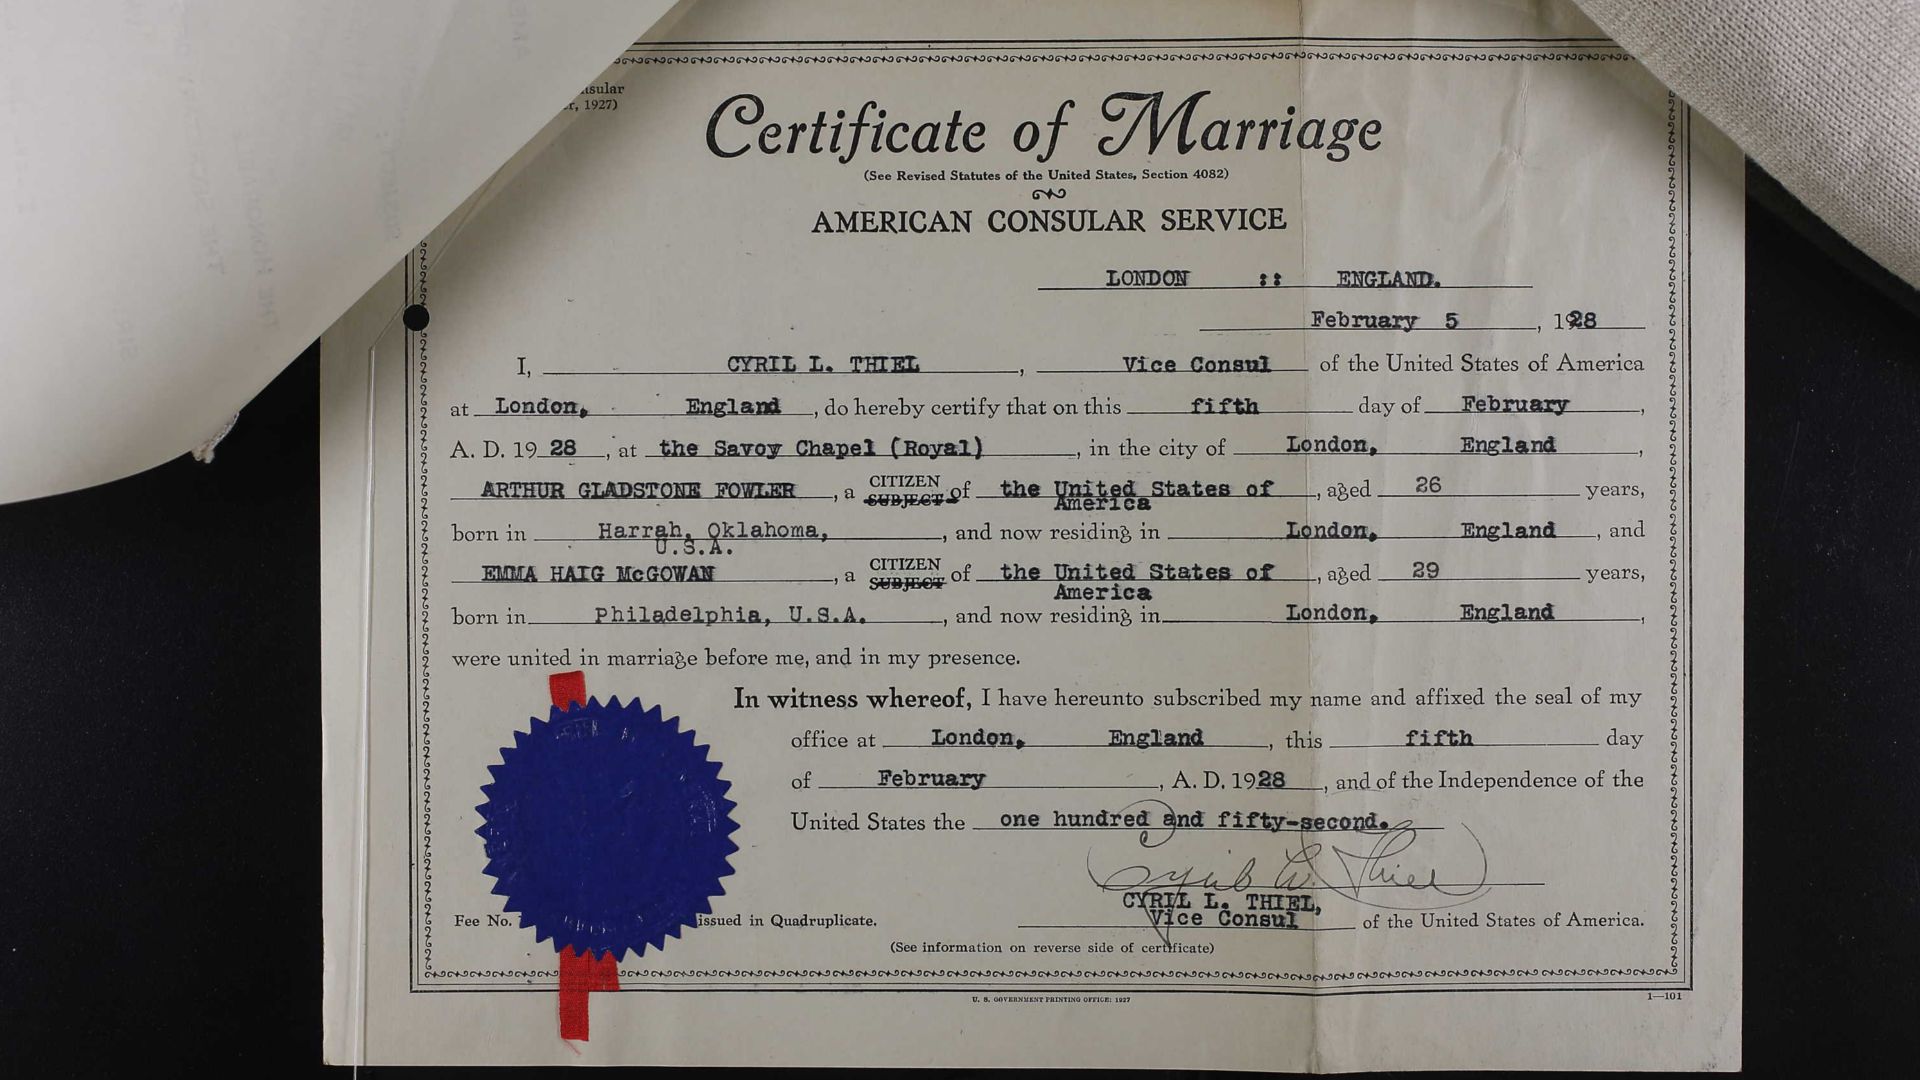 sular
r, 1927)
Certificate of Marriage
(See Revised Statutes of the United States, Section 4082)
AMERICAN CONSULAR SERVICE
LONDON :: ENGLAND.
February 5, 1928
I, CYRIL L. THIEL, Vice Consul of the United States of America
at London, England, do hereby certify that on this fifth day of February,
A. D. 19 28, at the Savoy Chapel (Royal), in the city of London, England,
ARTHUR GLADSTONE FOWLER, a CITIZEN SUBJECT of the United States of America, aged 26 years,
born in Harrah, Oklahoma, U.S.A., and now residing in London, England, and
EMMA HAIG McGOWAN, a CITIZEN SUBJECT of the United States of America, aged 29 years,
born in Philadelphia, U.S.A., and now residing in London, England,
were united in marriage before me, and in my presence.
In witness whereof, I have hereunto subscribed my name and affixed the seal of my
office at London, England, this fifth day
of February, A. D. 1928, and of the Independence of the
United States the one hundred and fifty-second.
Cyril L. Thiel
CYRIL L. THIEL,
Fee No. issued in Quadruplicate. Vice Consul of the United States of America.
(See information on reverse side of certificate)
U. S. GOVERNMENT PRINTING OFFICE: 1927
1—101